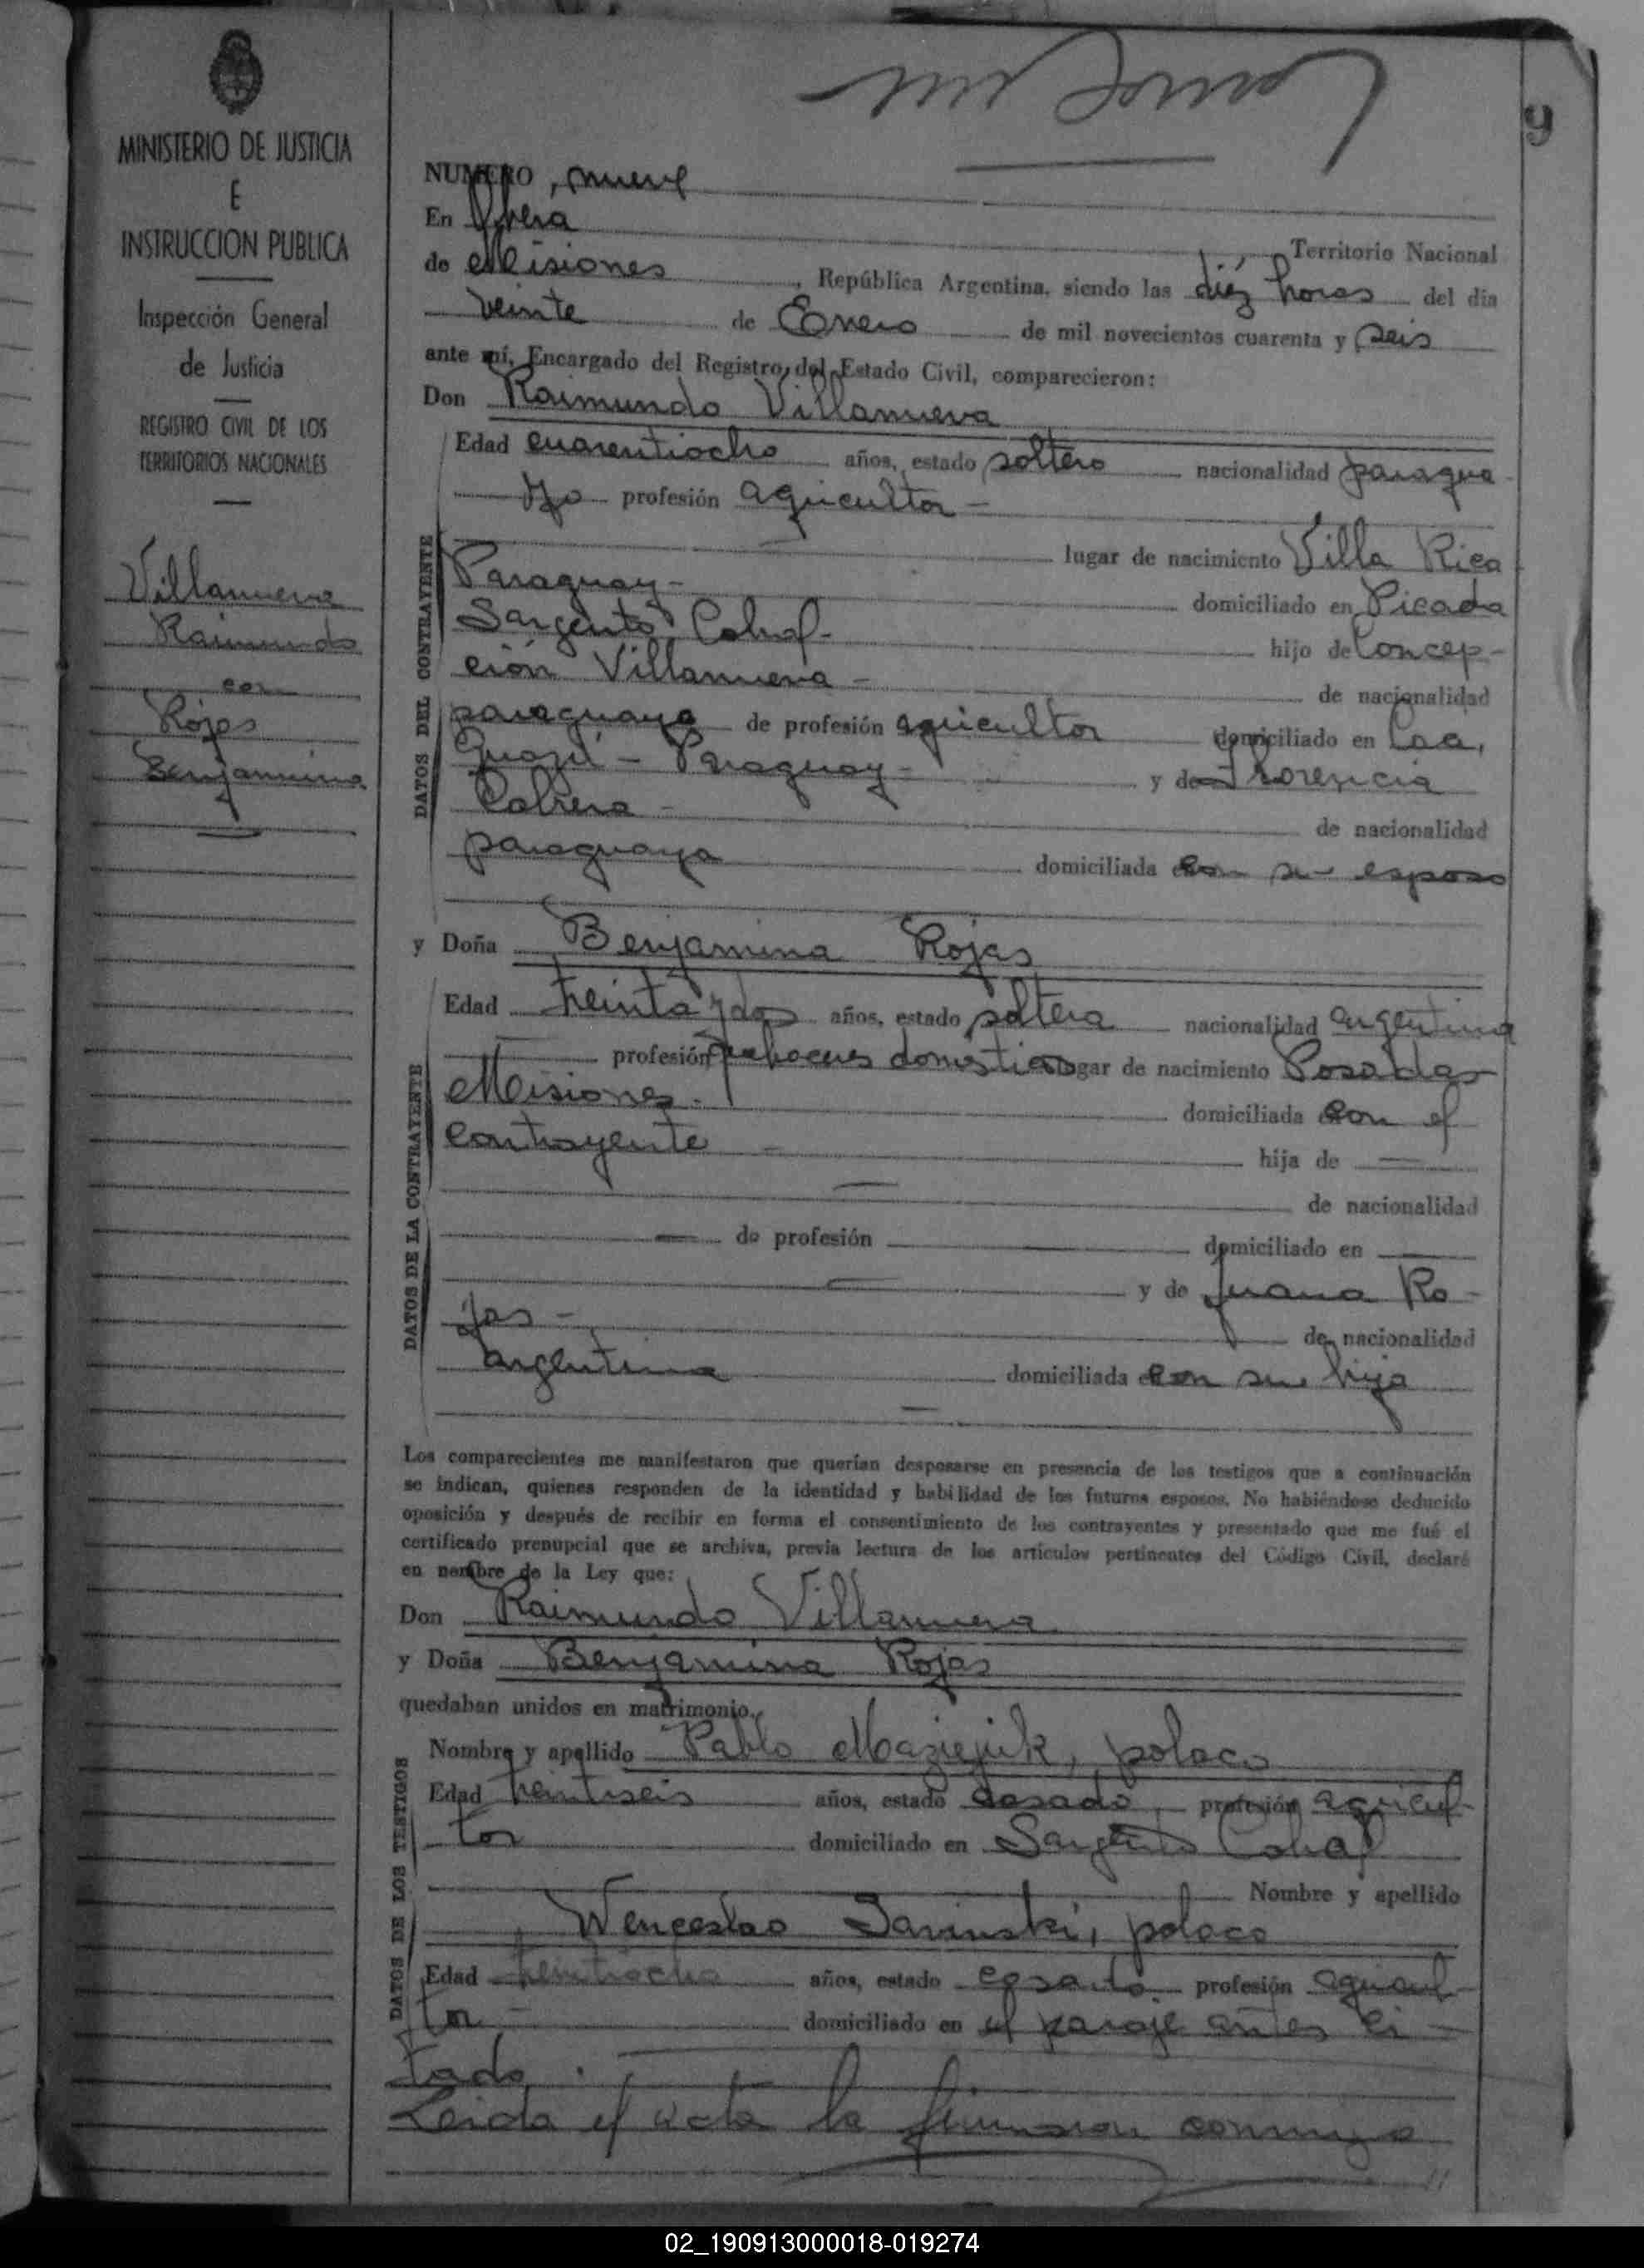 9
MINISTERIO DE JUSTICIA
E
INSTRUCCION PUBLICA
Inspección General
de Justicia
REGISTRO CIVIL DE LOS
TERRITORIOS NACIONALES
Villanueva
Raimundo
con
Rojas
Benjamina
NUMERO, nueve
En Oberá Territorio Nacional
de Misiones, República Argentina, siendo las diéz horas del día
veinte de Enero de mil novecientos cuarenta y seis
ante mí, Encargado del Registro del Estado Civil, comparecieron:
Don Raimundo Villanueva
DATOS DEL CONTRAYENTE
Edad cuarentiocho años, estado soltero nacionalidad paragua
yo profesión agricultor -
lugar de nacimiento Villa Rica
Paraguay - domiciliado en Picada
Sargento Cabral - hijo de Concep-
ción Villanueva - de nacionalidad
paraguaya de profesión agricultor domiciliado en Caa,
Guazú - Paraguay - y de Florencia
Cabrera - de nacionalidad
paraguaya domiciliada con su esposo
y Doña Benjamina Rojas
DATOS DE LA CONTRAYENTE
Edad treinta y dos años, estado soltera nacionalidad argentina
profesión quehaceres domésticos lugar de nacimiento Posadas
Misiones. domiciliada con el
contrayente - hija de —
— de nacionalidad
— de profesión — domiciliado en —
— y de Juana Ro-
jas - de nacionalidad
argentina domiciliada con su hija
Los comparecientes me manifestaron que querían desposarse en presencia de los testigos que a continuación
se indican, quienes responden de la identidad y habilidad de los futuros esposos. No habiéndose deducido
oposición y después de recibir en forma el consentimiento de los contrayentes y presentado que me fué el
certificado prenupcial que se archiva, previa lectura de los artículos pertinentes del Código Civil, declaré
en nombre de la Ley que:
Don Raimundo Villanueva
y Doña Benjamina Rojas
quedaban unidos en matrimonio.
DATOS DE LOS TESTIGOS
Nombre y apellido Pablo Maziejuk, polaco
Edad treintiseis años, estado casado, profesión agricul-
tor domiciliado en Sargento Cabral
Nombre y apellido
Wenceslao Savinski, polaco
Edad treintiocho años, estado casado. profesión agricul-
tor - domiciliado en el paraje antes ci-
tado.
Leida el acta la firmaron conmigo
02_190913000018-019274